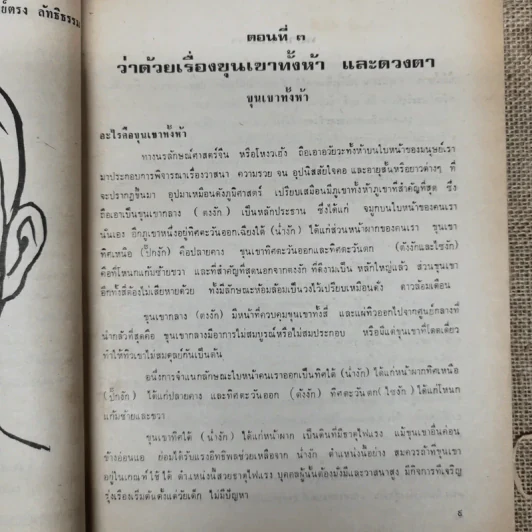 ย์ตรง ลัทธิธรรม
ตอนที่ ๓
ว่าด้วยเรื่องขุนเขาทั้งห้า และดวงตา
ขุนเขาทั้งห้า
อะไรคือขุนเขาทั้งห้า
ทางนรลักษณ์ศาสตร์จีน หรือโหงวเฮ้ง ถือเอาอวัยวะทั้งห้าบนใบหน้าของมนุษย์เรา
มาประกอบการพิจารณาเรื่องวาสนา ความรวย จน อุปนิสสัยใจคอ และอายุสั้นหรือยาวต่างๆ ที่
จะปรากฏขึ้นมา อุปมาเหมือนดังภูมิศาสตร์ เปรียบเสมือนมีภูเขาทั้งห้าภูเขาที่สำคัญที่สุด ซึ่ง
ถือเอาเป็นขุนเขากลาง (ตงงัก) เป็นหลักประธาน ซึ่งได้แก่ จมูกบนใบหน้าของคนเรา
นั่นเอง อีกภูเขาหนึ่งอยู่ทิศตะวันออกเฉียงใต้ (น่ำงัก) ได้แก่ส่วนหน้าผากของคนเรา ขุนเขา
ทิศเหนือ (ปั๊กงัก) คือปลายคาง ขุนเขาทิศตะวันออกและทิศตะวันตก (ตังงักและไซงัก)
คือที่โหนกแก้มซ้ายขวา และที่สำคัญที่สุดนอกจากตงงัก ที่ดีงามเป็น หลักใหญ่แล้ว ส่วนขุนเขา
อีกทั้งสี่ต้องไม่เสียหายด้วย ทั้งมีลักษณะห้อมล้อมเป็นวงไว้เปรียบเหมือนดัง ดาวล้อมเดือน
ขุนเขากลาง (ตงงัก) มีหน้าที่ควบคุมขุนเขาทั้งสี่ และแผ่ทิวออกไปจากศูนย์กลางที่
น่ากลัวที่สุดคือ ขุนเขากลางมีอาการไม่สมบูรณ์หรือไม่สมประกอบ หรือมีแต่ขุนเขาที่โดดเดี่ยว
ทำให้ทิวเขาไม่สมดุลย์กันเป็นต้น
อนึ่งการจำแนกลักษณะใบหน้าคนเราออกเป็นทิศใต้ (น่ำงัก) ได้แก่หน้าผากทิศเหนือ
(ปั๊กงัก) ได้แก่ปลายคาง และทิศตะวันออก (ตังงัก) ทิศตะวันตก(ไซงัก) ได้แก่โหนก
แก้มซ้ายและขวา
ขุนเขาทิศใต้ (น่ำงัก) ได้แก่หน้าผาก เป็นต้นที่มีธาตุไฟแรง แม้ขุนเขาอื่นค่อน
ข้างอ่อนแอ ย่อมได้รับแรงอิทธิพลช่วยเหลือจาก น่ำงัก ตำแหน่งนี้อย่าง สมควรถ้าที่ขุนเขา
อยู่ในเกณฑ์ใช้ได้ ตำแหน่งนี้สวยธาตุไฟแรง บุคคลผู้นั้นต้องมั่งมีและวาสนาสูง มีกิจการที่เจริญ
รุ่งเรืองเริ่มต้นตั้งแต่วัยเด็ก ไม่มีปัญหา